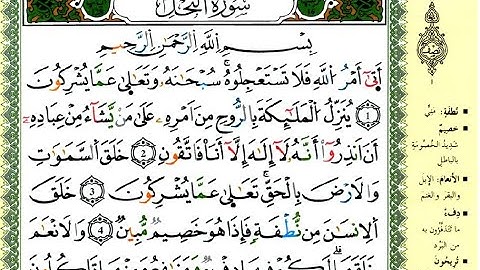 سُورَةُ النَّحْلِ
بِسْمِ اللَّهِ الرَّحْمَٰنِ الرَّحِيمِ
أَتَىٰٓ أَمْرُ اللَّهِ فَلَا تَسْتَعْجِلُوهُ سُبْحَٰنَهُۥ وَتَعَٰلَىٰ عَمَّا يُشْرِكُونَ
١ يُنَزِّلُ الْمَلَٰٓئِكَةَ بِالرُّوحِ مِنْ أَمْرِهِۦ عَلَىٰ مَن يَشَآءُ مِنْ عِبَادِهِۦٓ
أَنْ أَنذِرُوٓا أَنَّهُۥ لَآ إِلَٰهَ إِلَّآ أَنَا فَاتَّقُونِ ٢ خَلَقَ السَّمَٰوَٰتِ
وَالْأَرْضَ بِالْحَقِّ تَعَٰلَىٰ عَمَّا يُشْرِكُونَ ٣ خَلَقَ
الْإِنسَٰنَ مِن نُّطْفَةٍ فَإِذَا هُوَ خَصِيمٌ مُّبِينٌ ٤ وَالْأَنْعَٰمَ
نُطْفَةٍ: مَنِيٍّ
خَصِيمٌ:
شَدِيدُ الْخُصُومَةِ
بِالبَاطِلِ
الأنعام: الإبل
والبقر والغنم
دِفْءٌ:
مَا تَتَدَفَّؤُونَ بِهِ
مِن البَرْدِ
تُرِيحُونَ